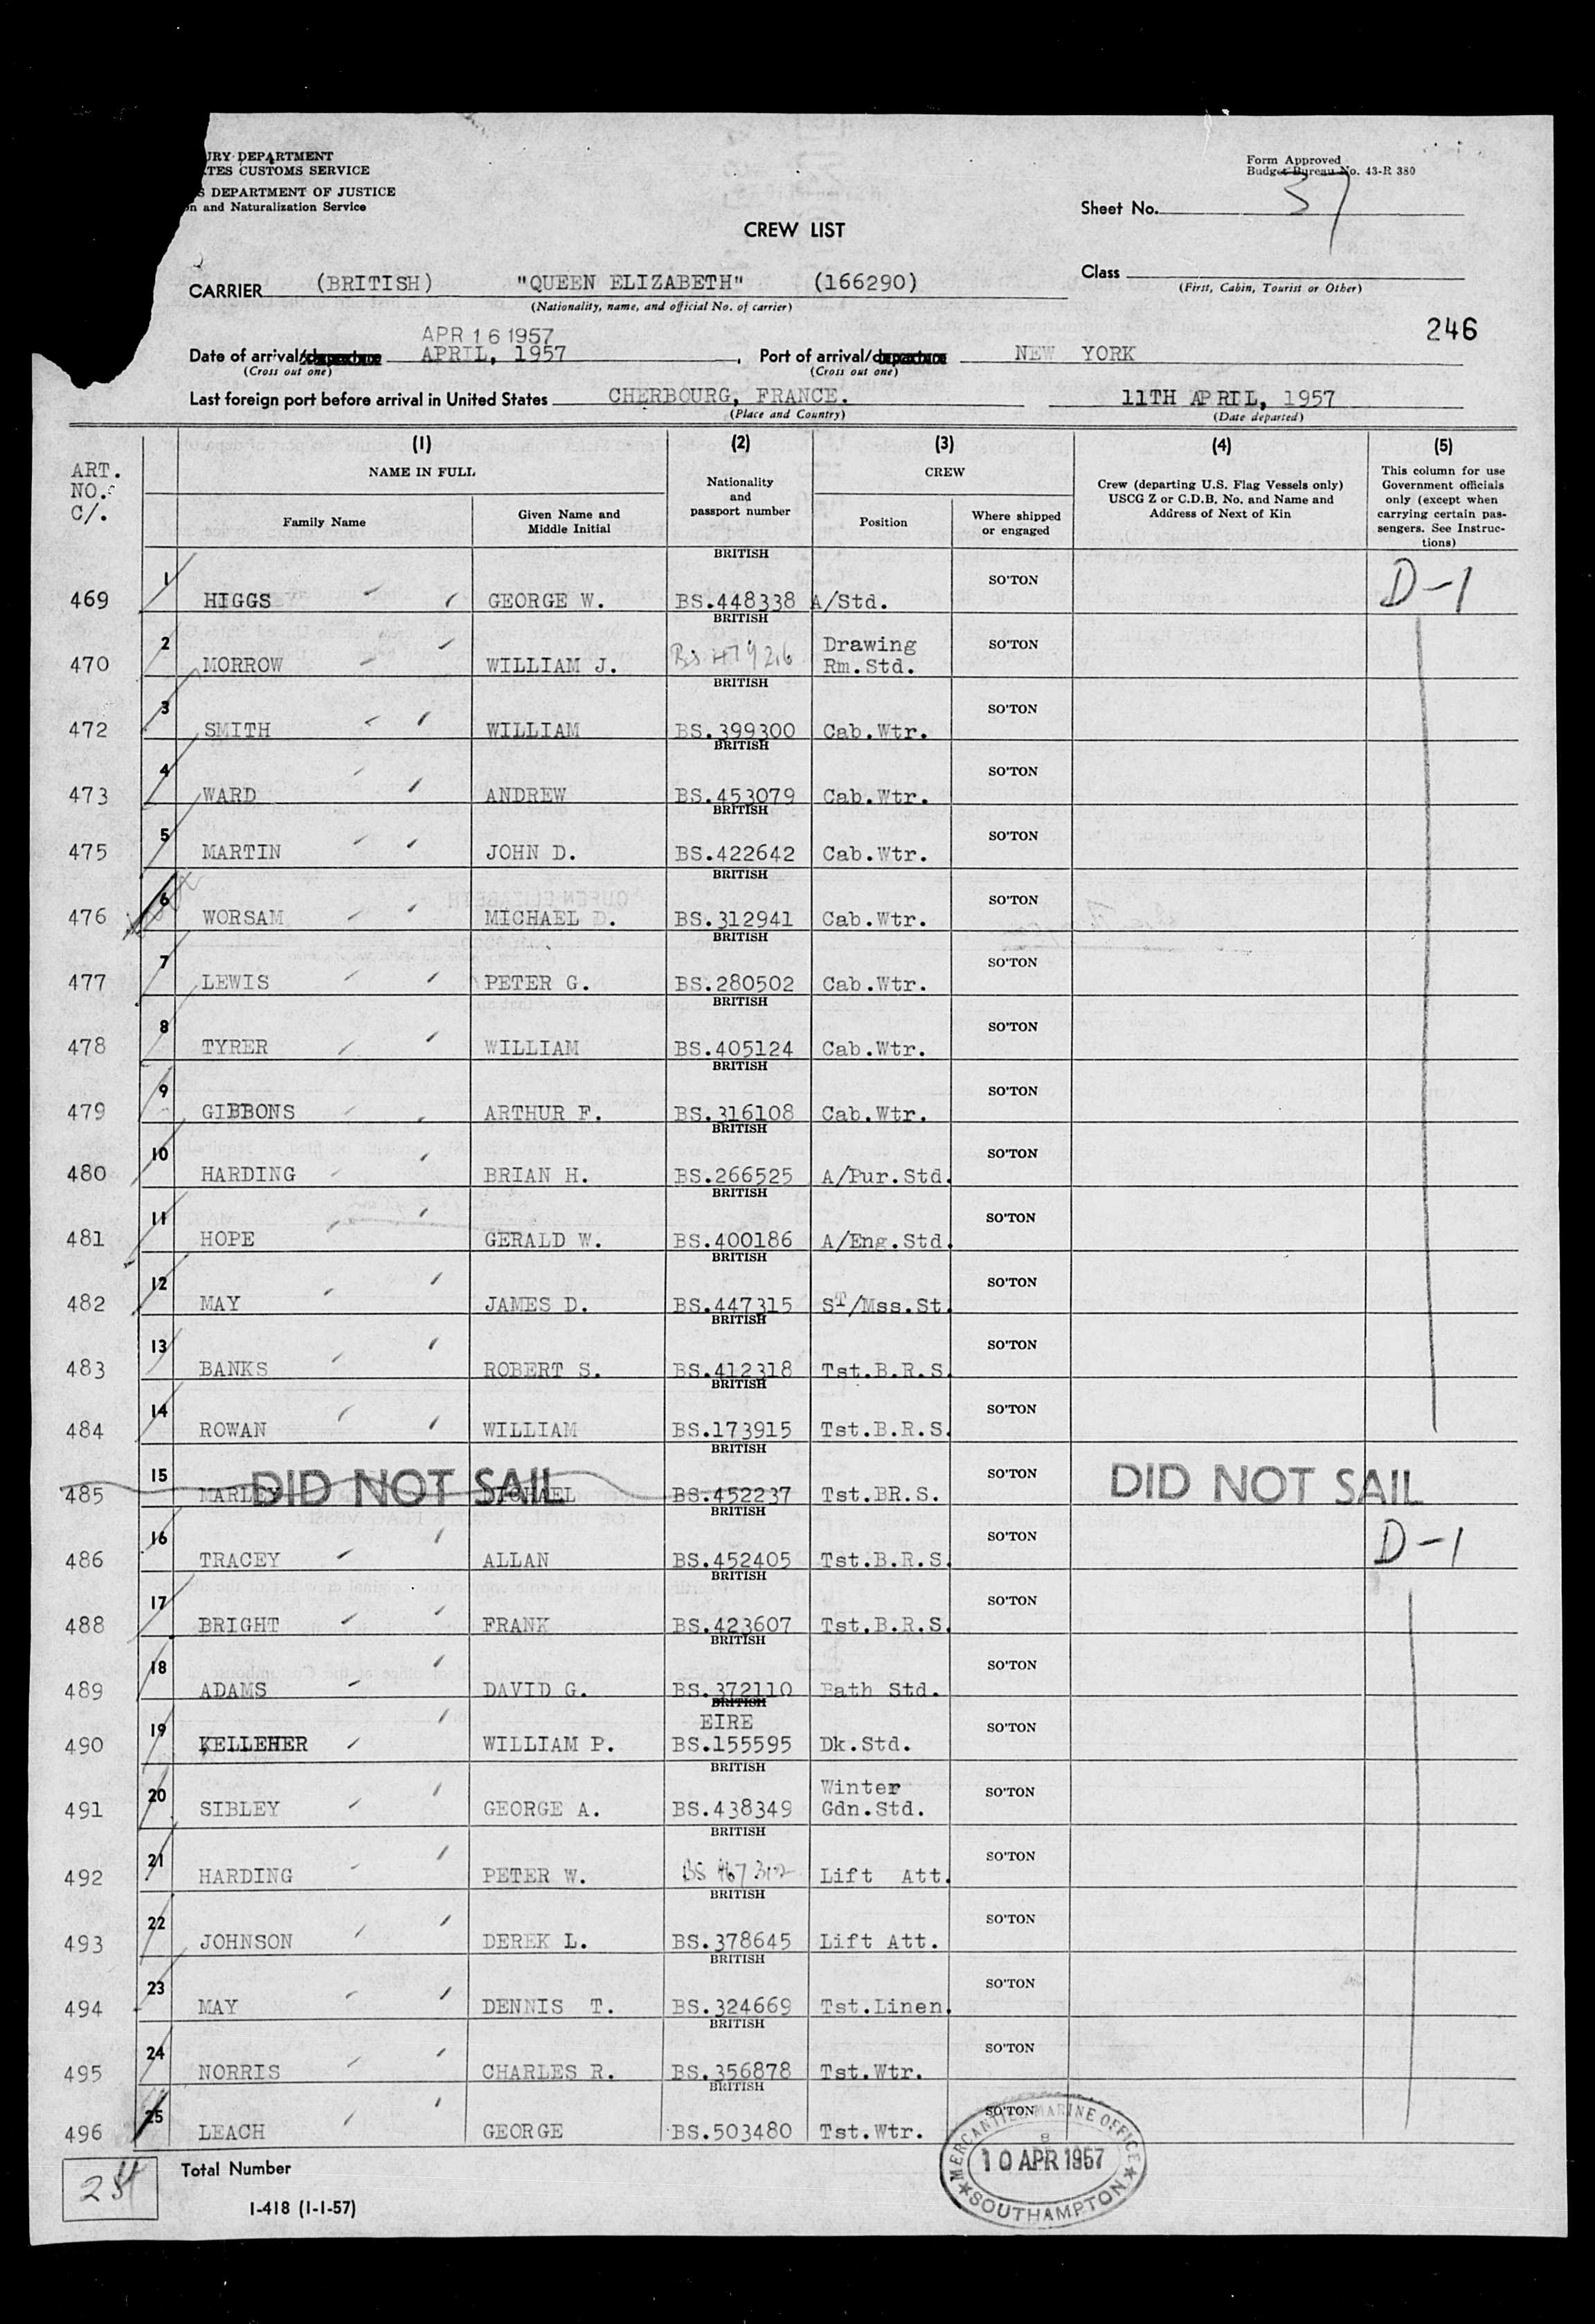 URY DEPARTMENT
TES CUSTOMS SERVICE
S DEPARTMENT OF JUSTICE
on and Naturalization Service
Form Approved
Budget Bureau No. 43-R 380
Sheet No. 37
CREW LIST
CARRIER (BRITISH) "QUEEN ELIZABETH" (166290)
(Nationality, name, and official No. of carrier)
Class
(First, Cabin, Tourist or Other)
246
APR 16 1957
Date of arrival/departure APRIL, 1957, Port of arrival/departure NEW YORK
(Cross out one) (Cross out one)
Last foreign port before arrival in United States CHERBOURG, FRANCE. 11TH APRIL, 1957
(Place and Country) (Date departed)
ART. NO. C/.
(1) (2) (3) (4) (5)
NAME IN FULL
Family Name
Given Name and Middle Initial
Nationality and passport number
CREW
Position
Where shipped or engaged
Crew (departing U.S. Flag Vessels only)
USCG Z or C.D.B. No. and Name and
Address of Next of Kin
This column for use
Government officials
only (except when
carrying certain pas-
sengers. See Instruc-
tions)
469 1 HIGGS GEORGE W. BRITISH BS.448338 A/Std. SO'TON D-1
470 2 MORROW WILLIAM J. BRITISH Drawing Rm.Std. SO'TON
472 3 SMITH WILLIAM BRITISH BS.399300 Cab.Wtr. SO'TON
473 4 WARD ANDREW BRITISH BS.453079 Cab.Wtr. SO'TON
475 5 MARTIN JOHN D. BRITISH BS.422642 Cab.Wtr. SO'TON
476 6 WORSAM MICHAEL D. BRITISH BS.312941 Cab.Wtr. SO'TON
477 7 LEWIS PETER G. BRITISH BS.280502 Cab.Wtr. SO'TON
478 8 TYRER WILLIAM BRITISH BS.405124 Cab.Wtr. SO'TON
479 9 GIBBONS ARTHUR F. BRITISH BS.316108 Cab.Wtr. SO'TON
480 10 HARDING BRIAN H. BRITISH BS.266525 A/Pur.Std. SO'TON
481 11 HOPE GERALD W. BRITISH BS.400186 A/Eng.Std. SO'TON
482 12 MAY JAMES D. BRITISH BS.447315 ST/Mss.St. SO'TON
483 13 BANKS ROBERT S. BRITISH BS.412318 Tst.B.R.S. SO'TON
484 14 ROWAN WILLIAM BRITISH BS.173915 Tst.B.R.S. SO'TON
485 15 MARLEY DID NOT SAIL MICHAEL BRITISH BS.452237 Tst.BR.S. SO'TON DID NOT SAIL
486 16 TRACEY ALLAN BRITISH BS.452405 Tst.B.R.S. SO'TON D-1
488 17 BRIGHT FRANK BRITISH BS.423607 Tst.B.R.S. SO'TON
489 18 ADAMS DAVID G. BRITISH BS.372110 Bath Std. SO'TON
490 19 KELLEHER WILLIAM P. BRITISH EIRE BS.155595 Dk.Std. SO'TON
491 20 SIBLEY GEORGE A. BRITISH BS.438349 Winter Gdn.Std. SO'TON
492 21 HARDING PETER W. BRITISH Lift Att. SO'TON
493 22 JOHNSON DEREK L. BRITISH BS.378645 Lift Att. SO'TON
494 23 MAY DENNIS T. BRITISH BS.324669 Tst.Linen. SO'TON
495 24 NORRIS CHARLES R. BRITISH BS.356878 Tst.Wtr. SO'TON
496 25 LEACH GEORGE BRITISH BS.503480 Tst.Wtr. SO'TON
MERCANTILE MARINE OFFICE
8
10 APR 1957
SOUTHAMPTON
Total Number
I-418 (1-1-57)